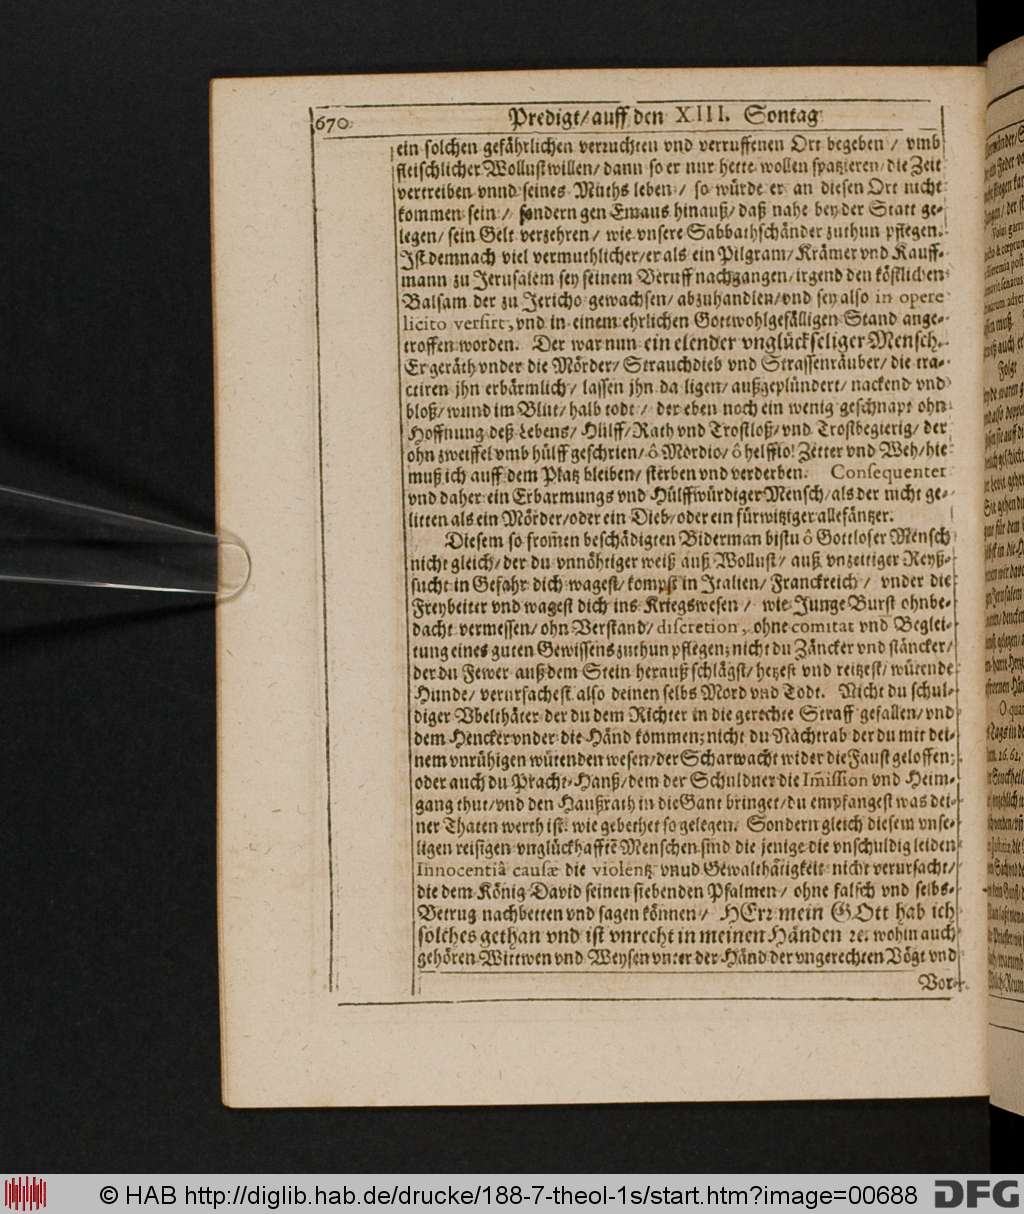 670. Predigt/ auff den XIII. Sontag
ein solchen gefährlichen verruchten vnd verruffenen Ort begeben / vmb
fleischlicher Wollust willen/ dann so er nur hette wollen spatzieren/ die Zeit
vertreiben vnnd seines Muths leben / so würde er an diesen Ort nicht
kommen sein / sondern gen Emaus hinauß/ daß nahe bey der Statt ge-
legen/ sein Gelt verzehren / wie vnsere Sabbathschänder zuthun pflegen.
Ist demnach viel vermuthlicher/ er als ein Pilgram/ Krämer vnd Kauff-
mann zu Jerusalem sey seinem Beruff nachgangen/ irgend den köstlichen
Balsam der zu Jericho gewachsen/ abzuhandlen/ vnd sey also in opere
licito versirt, vnd in einem ehrlichen Gottwohlgefälligen Stand ange-
troffen worden. Der war nun ein elender vnglückseliger Mensch.
Er geräth vnder die Mörder/ Strauchdieb vnd Strassenräuber/ die tra-
ctiren jhn erbärmlich/ lassen jhn da ligen/ außgeplündert/ nackend vnd
bloß/ wund im Blut/ halb todt / der eben noch ein wenig geschnapt ohn
Hoffnung deß Lebens/ Hülff/ Rath vnd Trostloß/ vnd Trostbegierig/ der
ohn zweiffel vmb hülff geschrien/ ô Mordio/ ô helffio! Zetter vnd Weh/ hie
muß ich auff dem Platz bleiben/ sterben vnd verderben. Consequenter
vnd daher ein Erbarmungs vnd Hülffwürdiger Mensch/ als der nicht ge-
litten als ein Mörder/ oder ein Dieb/ oder ein fürwitziger allefäntzer.
Diesem so from̃en beschädigten Biderman bistu ô Gottloser Mensch
nicht gleich/ der du vnnöhtiger weiß auß Wollust/ auß vnzeitiger Reyß-
sucht in Gefahr dich wagest/ kompst in Italien/ Franckreich / vnder die
Freybeiter vnd wagest dich ins Kriegswesen / wie Junge Burst ohnbe-
dacht vermessen/ ohn Verstand/ discretion, ohne comitat vnd Beglei-
tung eines guten Gewissens zuthun pflegen; nicht du Zäncker vnd stäncker/
der du Fewer auß dem Stein herauß schlägst/ hetzest vnd reitzest/ wütende
Hunde/ verursachest also deinen selbs Mord vnd Todt. Nicht du schul-
diger Vbelthäter der du dem Richter in die gerechte Straff gefallen/ vnd
dem Hencker vnder die Händ kommen; nicht du Nachtrab der du mit dei-
nem vnrühigen wütenden wesen/ der Scharwacht wider die Faust geloffen;
oder auch du Pracht-Hanß/ dem der Schuldner die Im̃ission vnd Heim-
gang thut/ vnd den Haußrath in die Gant bringet/ du empfangest was dei-
ner Thaten werth ist: wie gebethet so gelegen. Sondern gleich diesem vnse-
ligen reisigen vnglückhafftẽ Menschen sind die jenige die vnschuldig leiden
Innocentiâ causæ die violentz vnud Gewalthätigkeit nicht verursacht/
die dem König David seinen siebenden Psalmen/ ohne falsch vnd selbs-
Betrug nachbetten vnd sagen können/ HErr mein GOtt hab ich
solches gethan vnd ist vnrecht in meinen Händen ꝛc. wohin auch
gehören Wittwen vnd Weysen vnter der Händ der vngerechten Vögt vnd
Vor-
© HAB http://diglib.hab.de/drucke/188-7-theol-1s/start.htm?image=00688 DFG